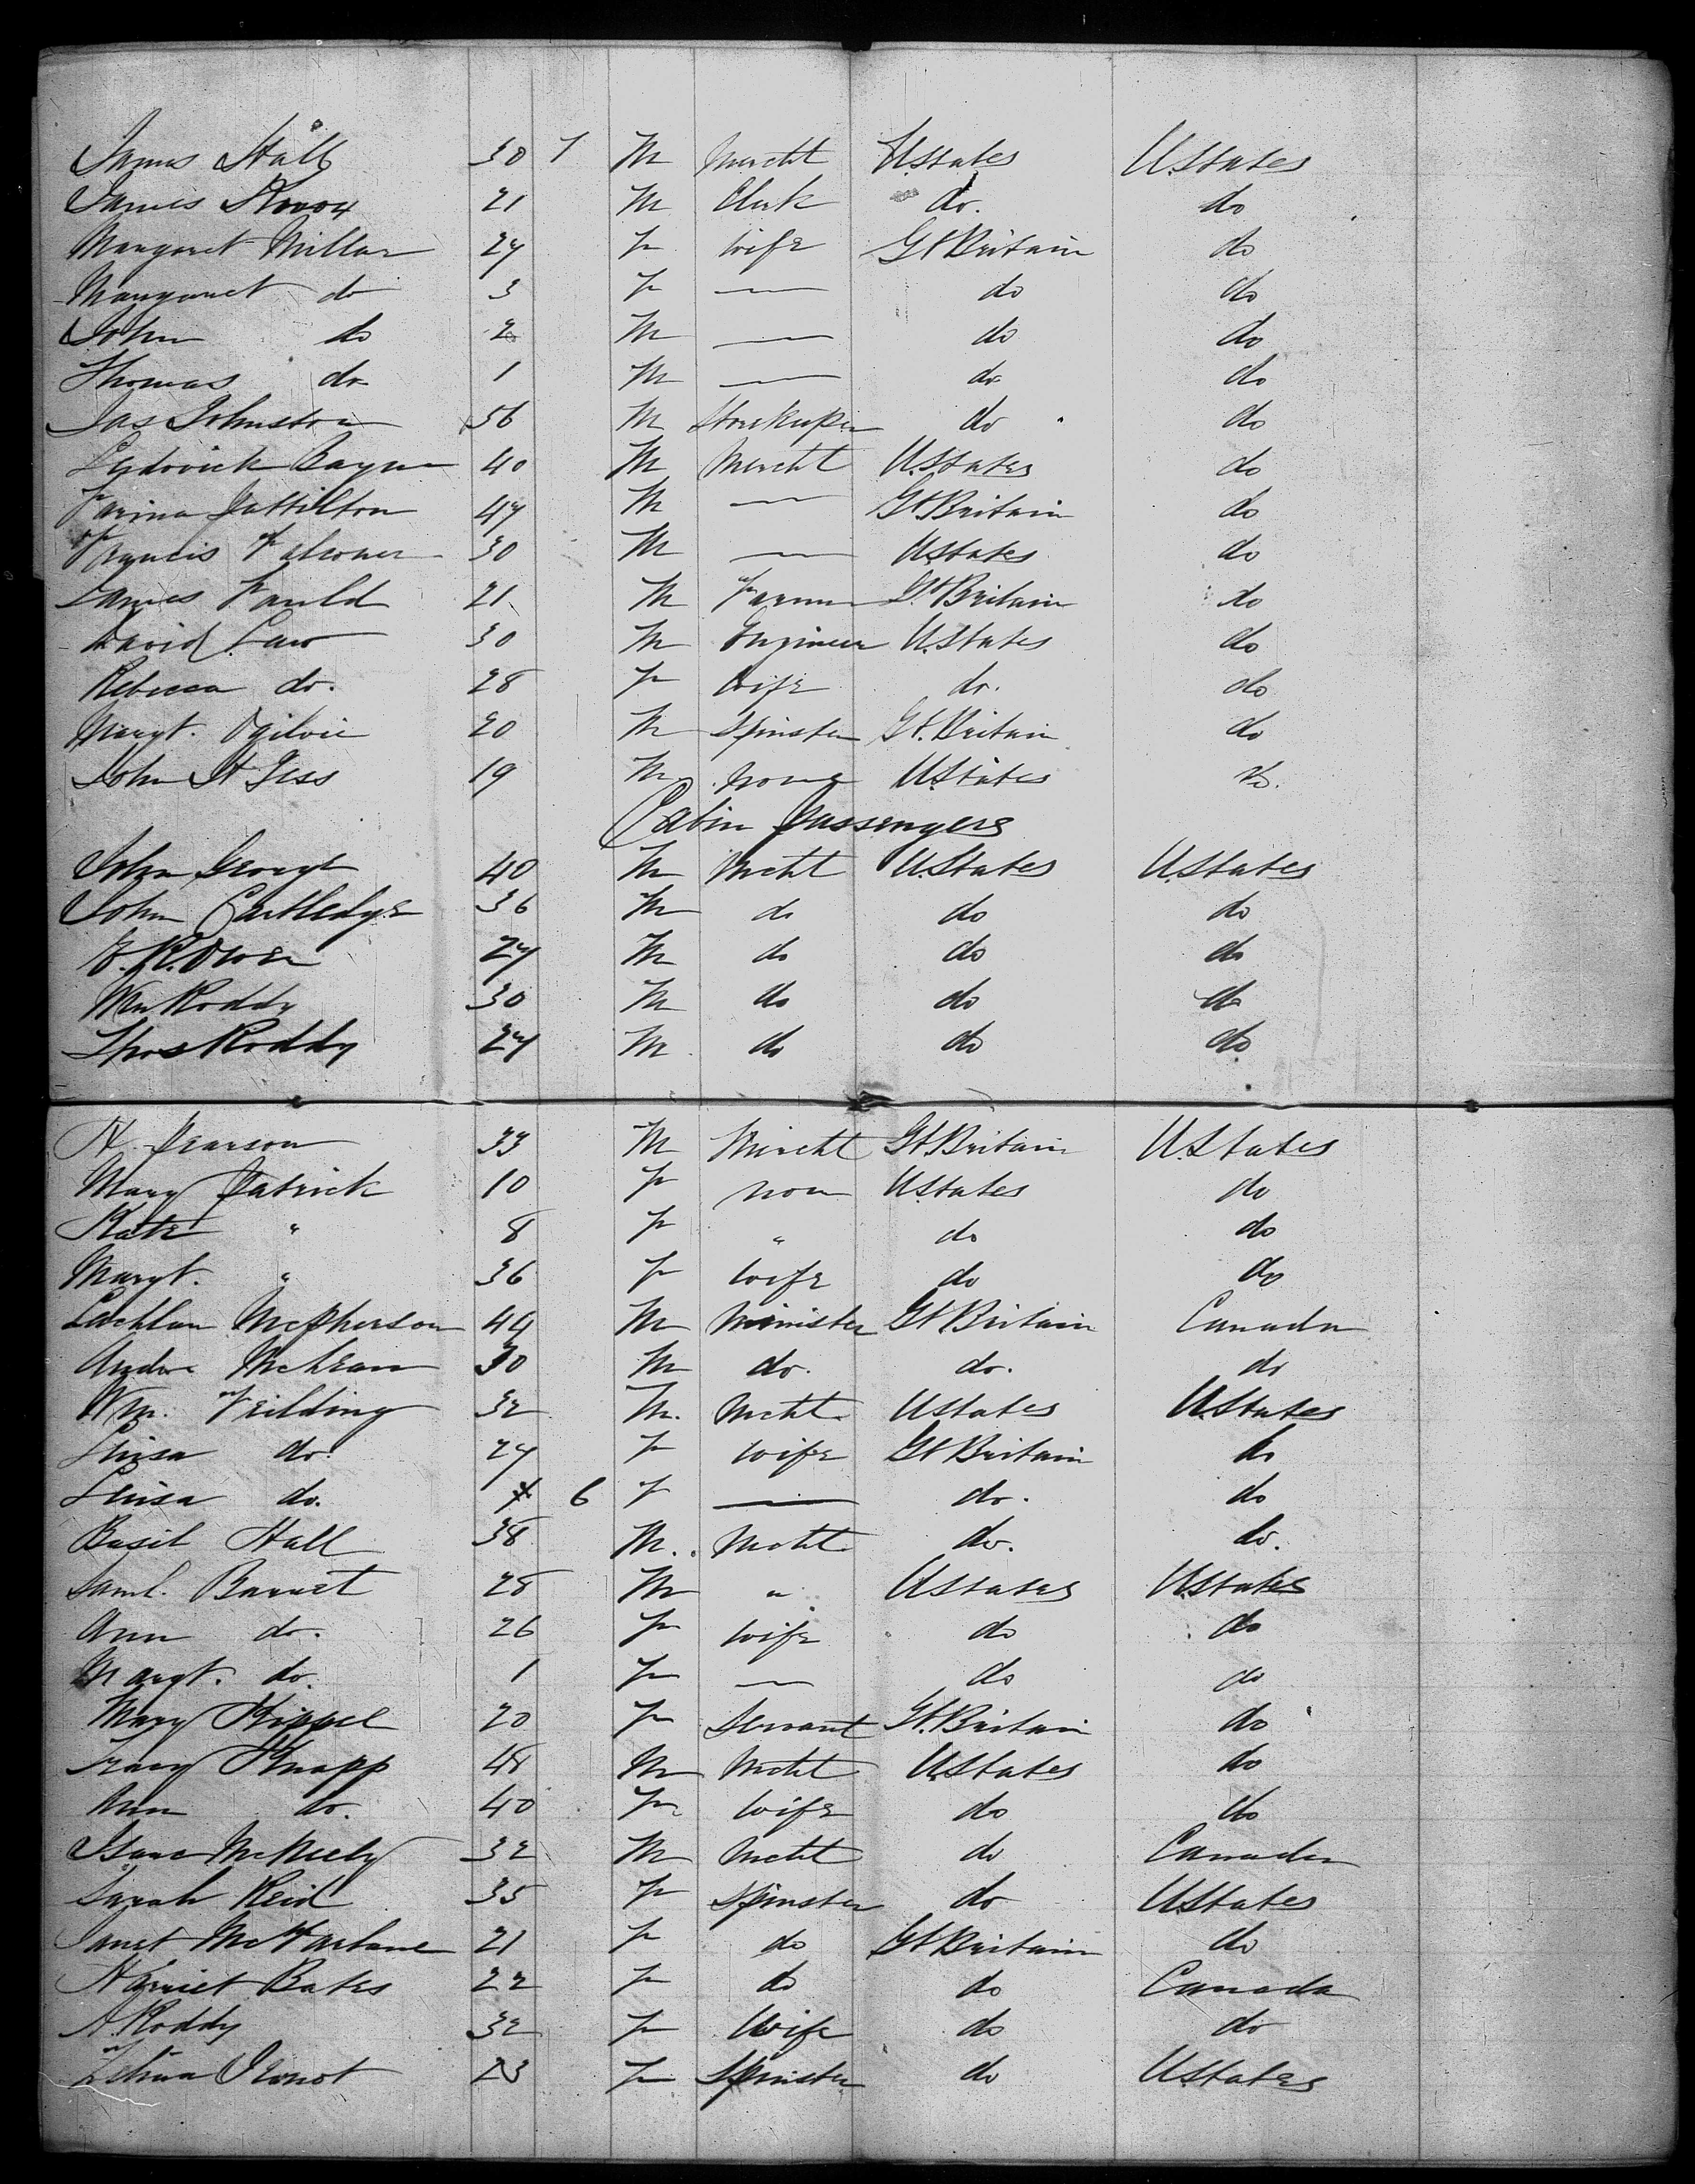 James Hall 30 7 M Mercht U.States U.States
James 21 M Clerk do. do
Margaret Millar 27 F Wife Gt Britain do
Margaret do 3 F — do do
John do 2 M — do do
Thomas do 1 M — do do
Jas Johnston 56 M Storekeeper do do
Ludovick Bayne 40 M Mercht U.States do
47 M — Gt.Britain do
Francis Falconer 30 M — U.States do
James Fauld 21 M Farmer Gt.Britain do
David Law 30 M Engineer U.States do
Rebecca do. 28 F Wife do. do
Margt. Ogilvie 20 M Spinster Gt.Britain do
John H Gess 19 M None U.States do.
Cabin Passengers
John 40 M Mcht U.States U.States
John Cartledge 36 M do do do
27 M do do do
Wm Roddy 30 M do do do
Thos Roddy 27 M do do do
H. Pearson 33 M Mercht Gt.Britain U.States
Mary Patrick 10 F non U.States do
Kate " 8 F " do do
Margt. " 36 F Wife do do
Lachlan McPherson 44 M Minister Gt.Britain Canada
Andw McLean 30 M do. do. do
Wm. Feilding 32 M. Mcht. U.States U.States
Luisa do. 27 F Wife Gt Britain do
Luisa do. 6 F — do. do
Basil Hall 38 M. Mcht. do. do.
Saml. Barnet 28 M " U.States U.States
Ann do. 26 F Wife do do
Margt. do. 1 F — do do
Mary Kippel 20 F Servant Gt.Britain do
Knapp 48 M Mcht U.States do
Ann do. 40 F Wife do do
Isaac McNeely 32 M Mcht do Canada
Sarah Reid 35 F Spinster do U.States
Janet McFarlane 21 F do Gt Britain do
Harriet Bates 22 F do do Canada
A Roddy 32 F Wife do do
23 F Spinster do U.States